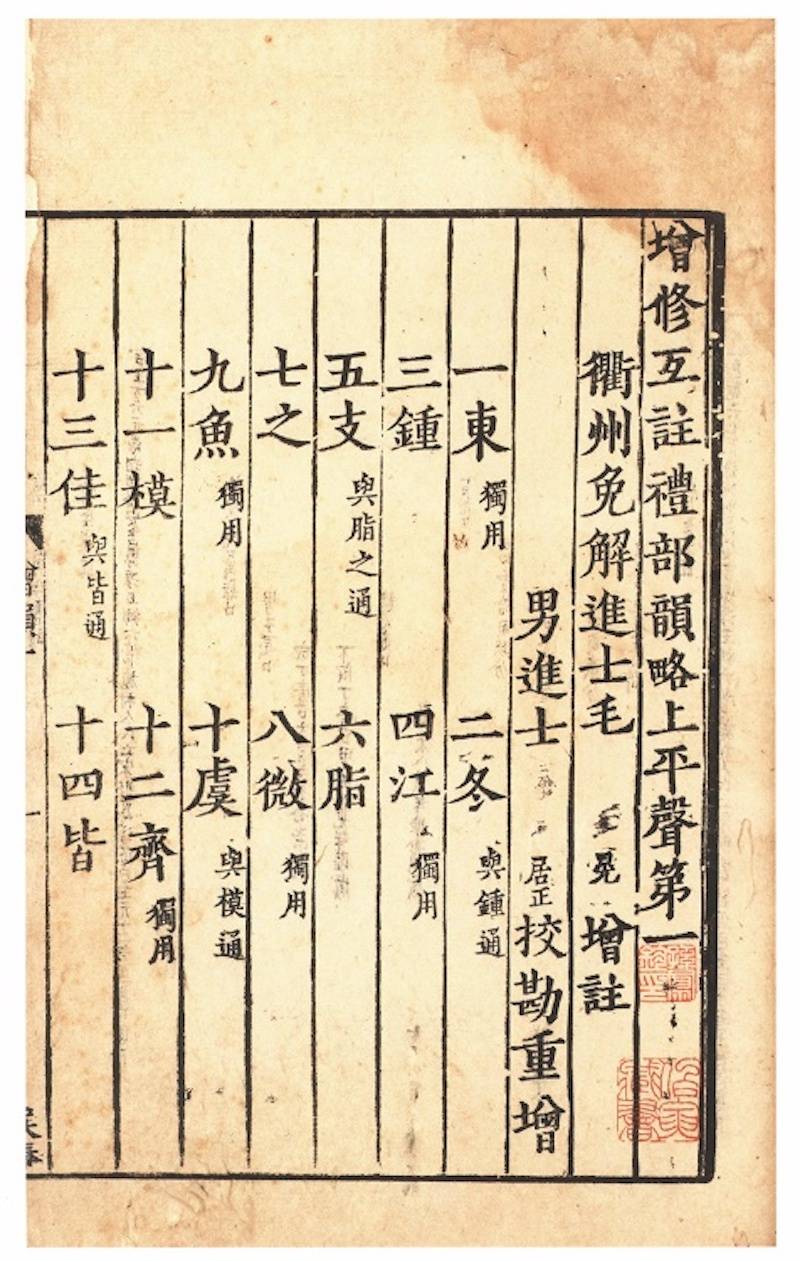 增修互註禮部韻略上平聲第一
衢州免解進士毛 晃 增註
男進士 居正 挍勘重增
一東 獨用 二冬 與鍾通
三鍾 四江 獨用
五支 與脂之通 六脂
七之 八微 獨用
九魚 獨用 十虞 與模通
十一模 十二齊 獨用
十三佳 與皆通 十四皆
增韻一